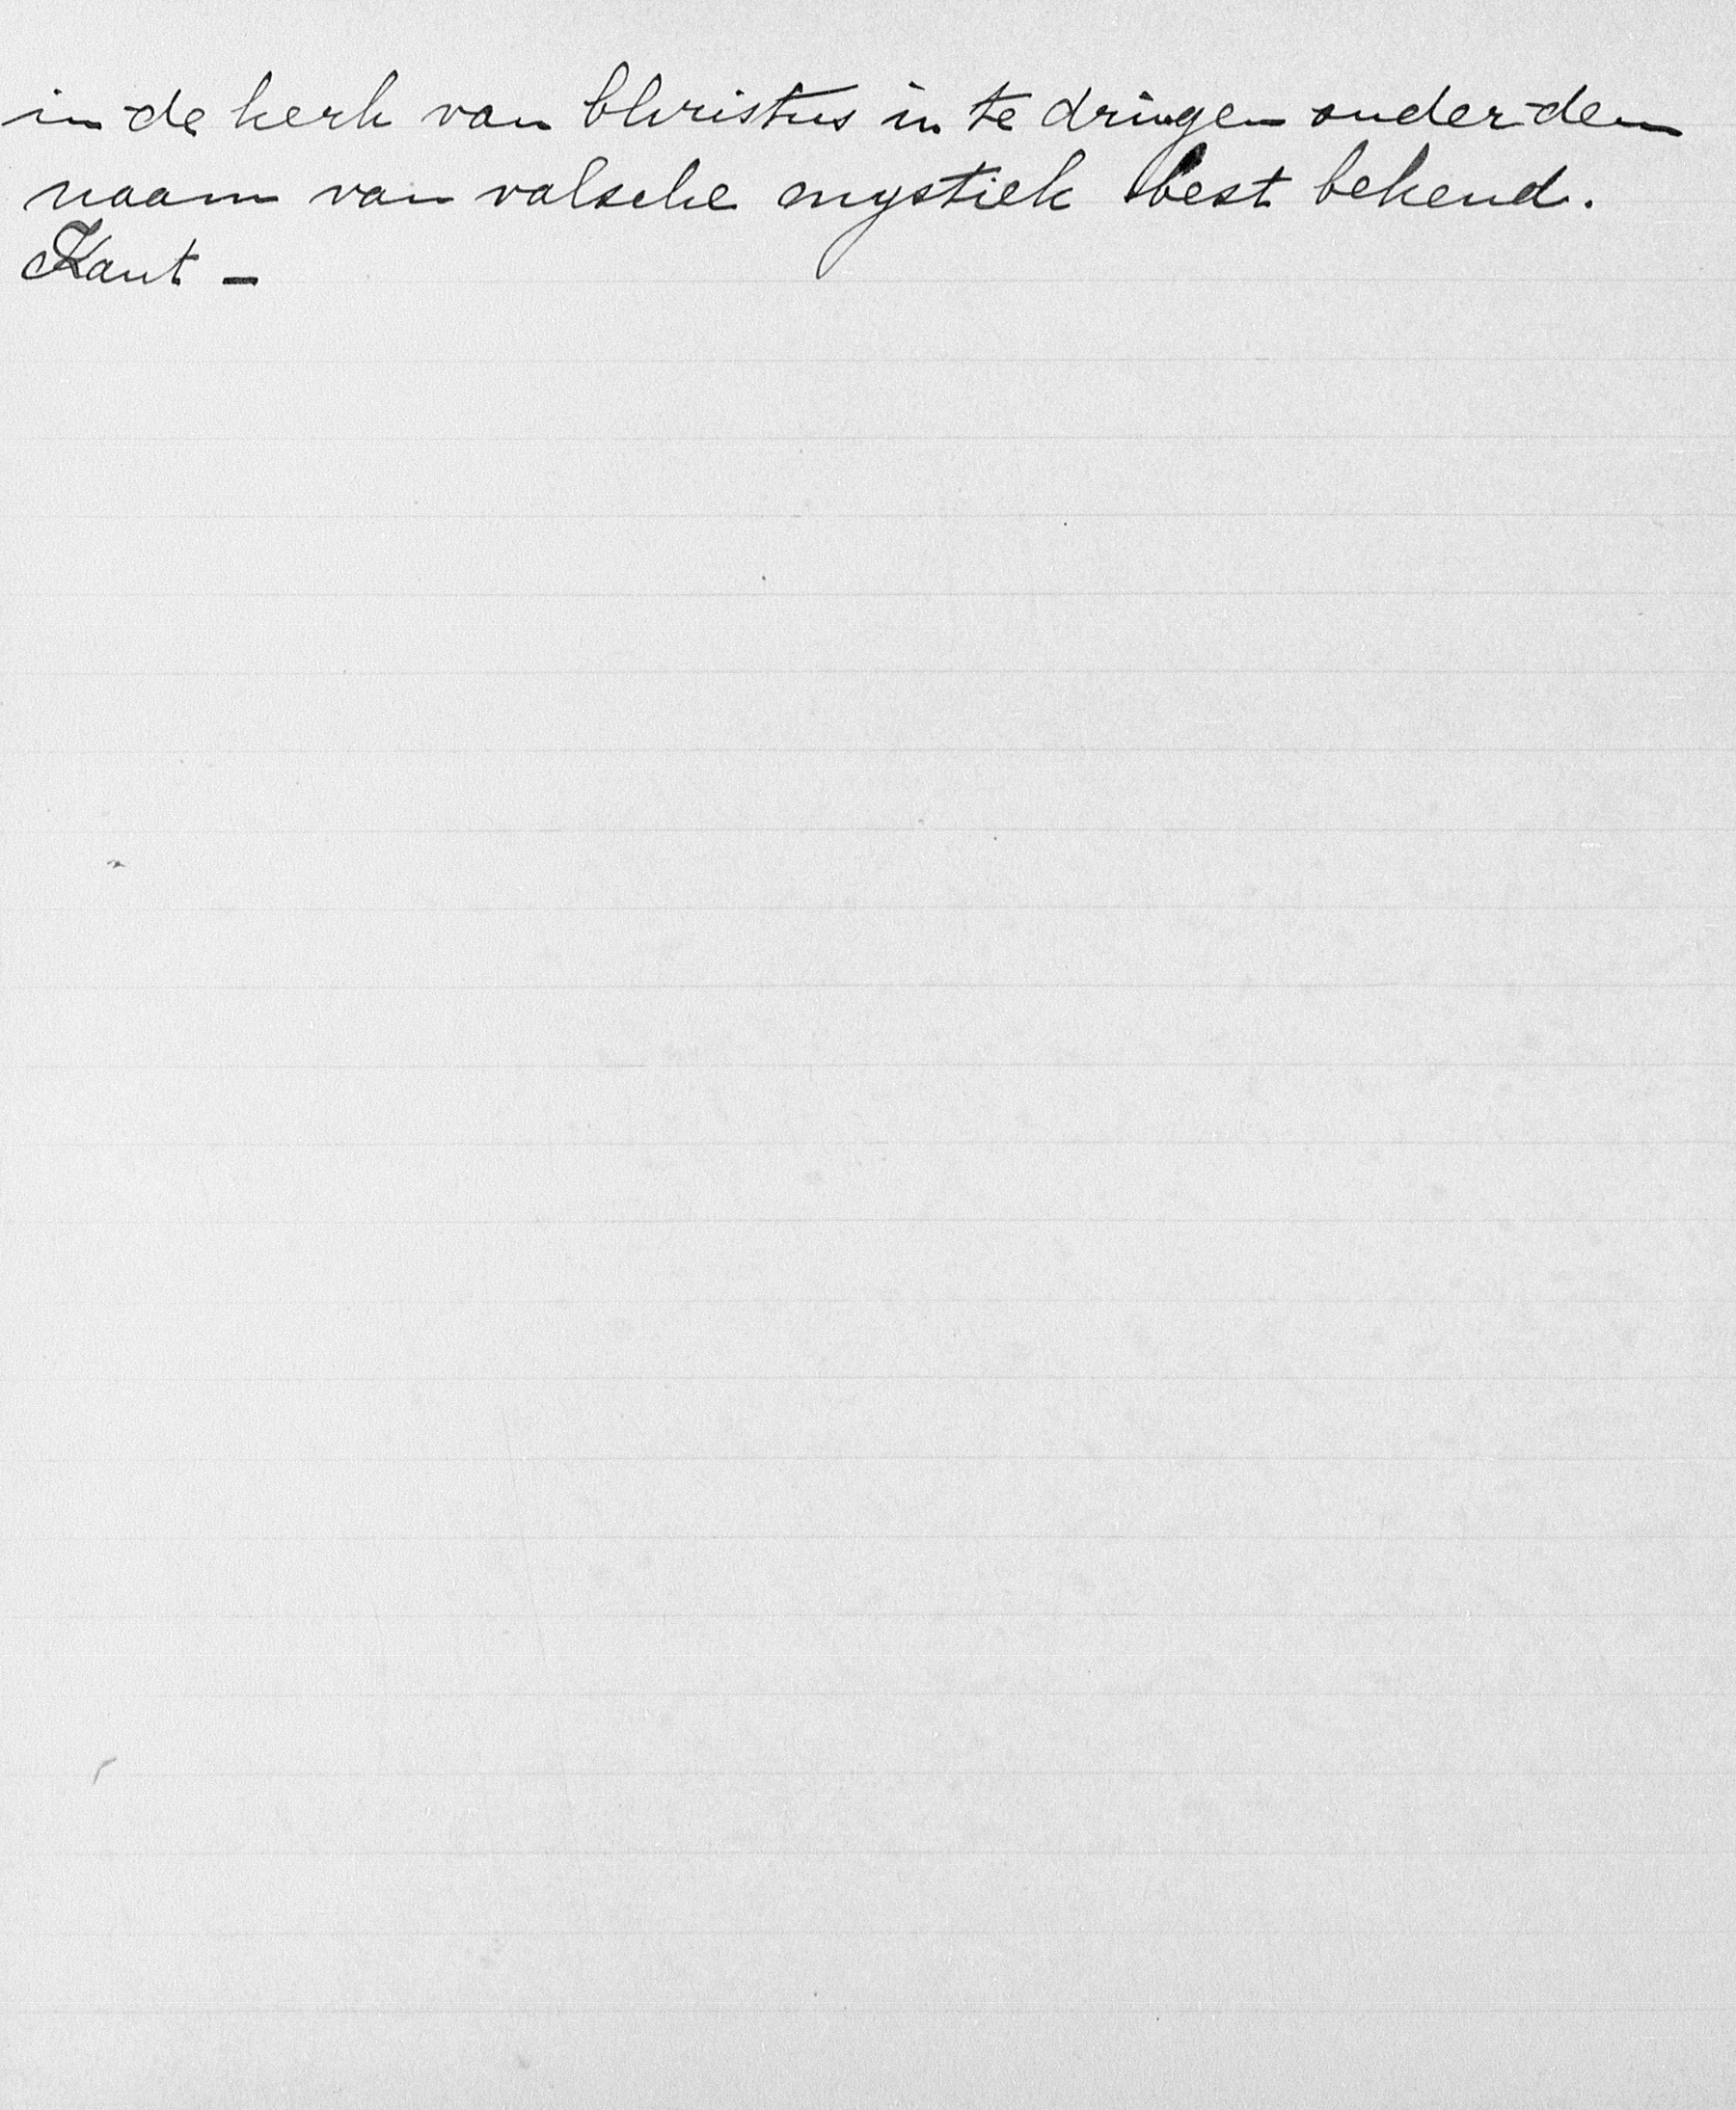 in de kerk van Christus in te dringen onder den
naam van valsche mystiek best bekend.
Kant -